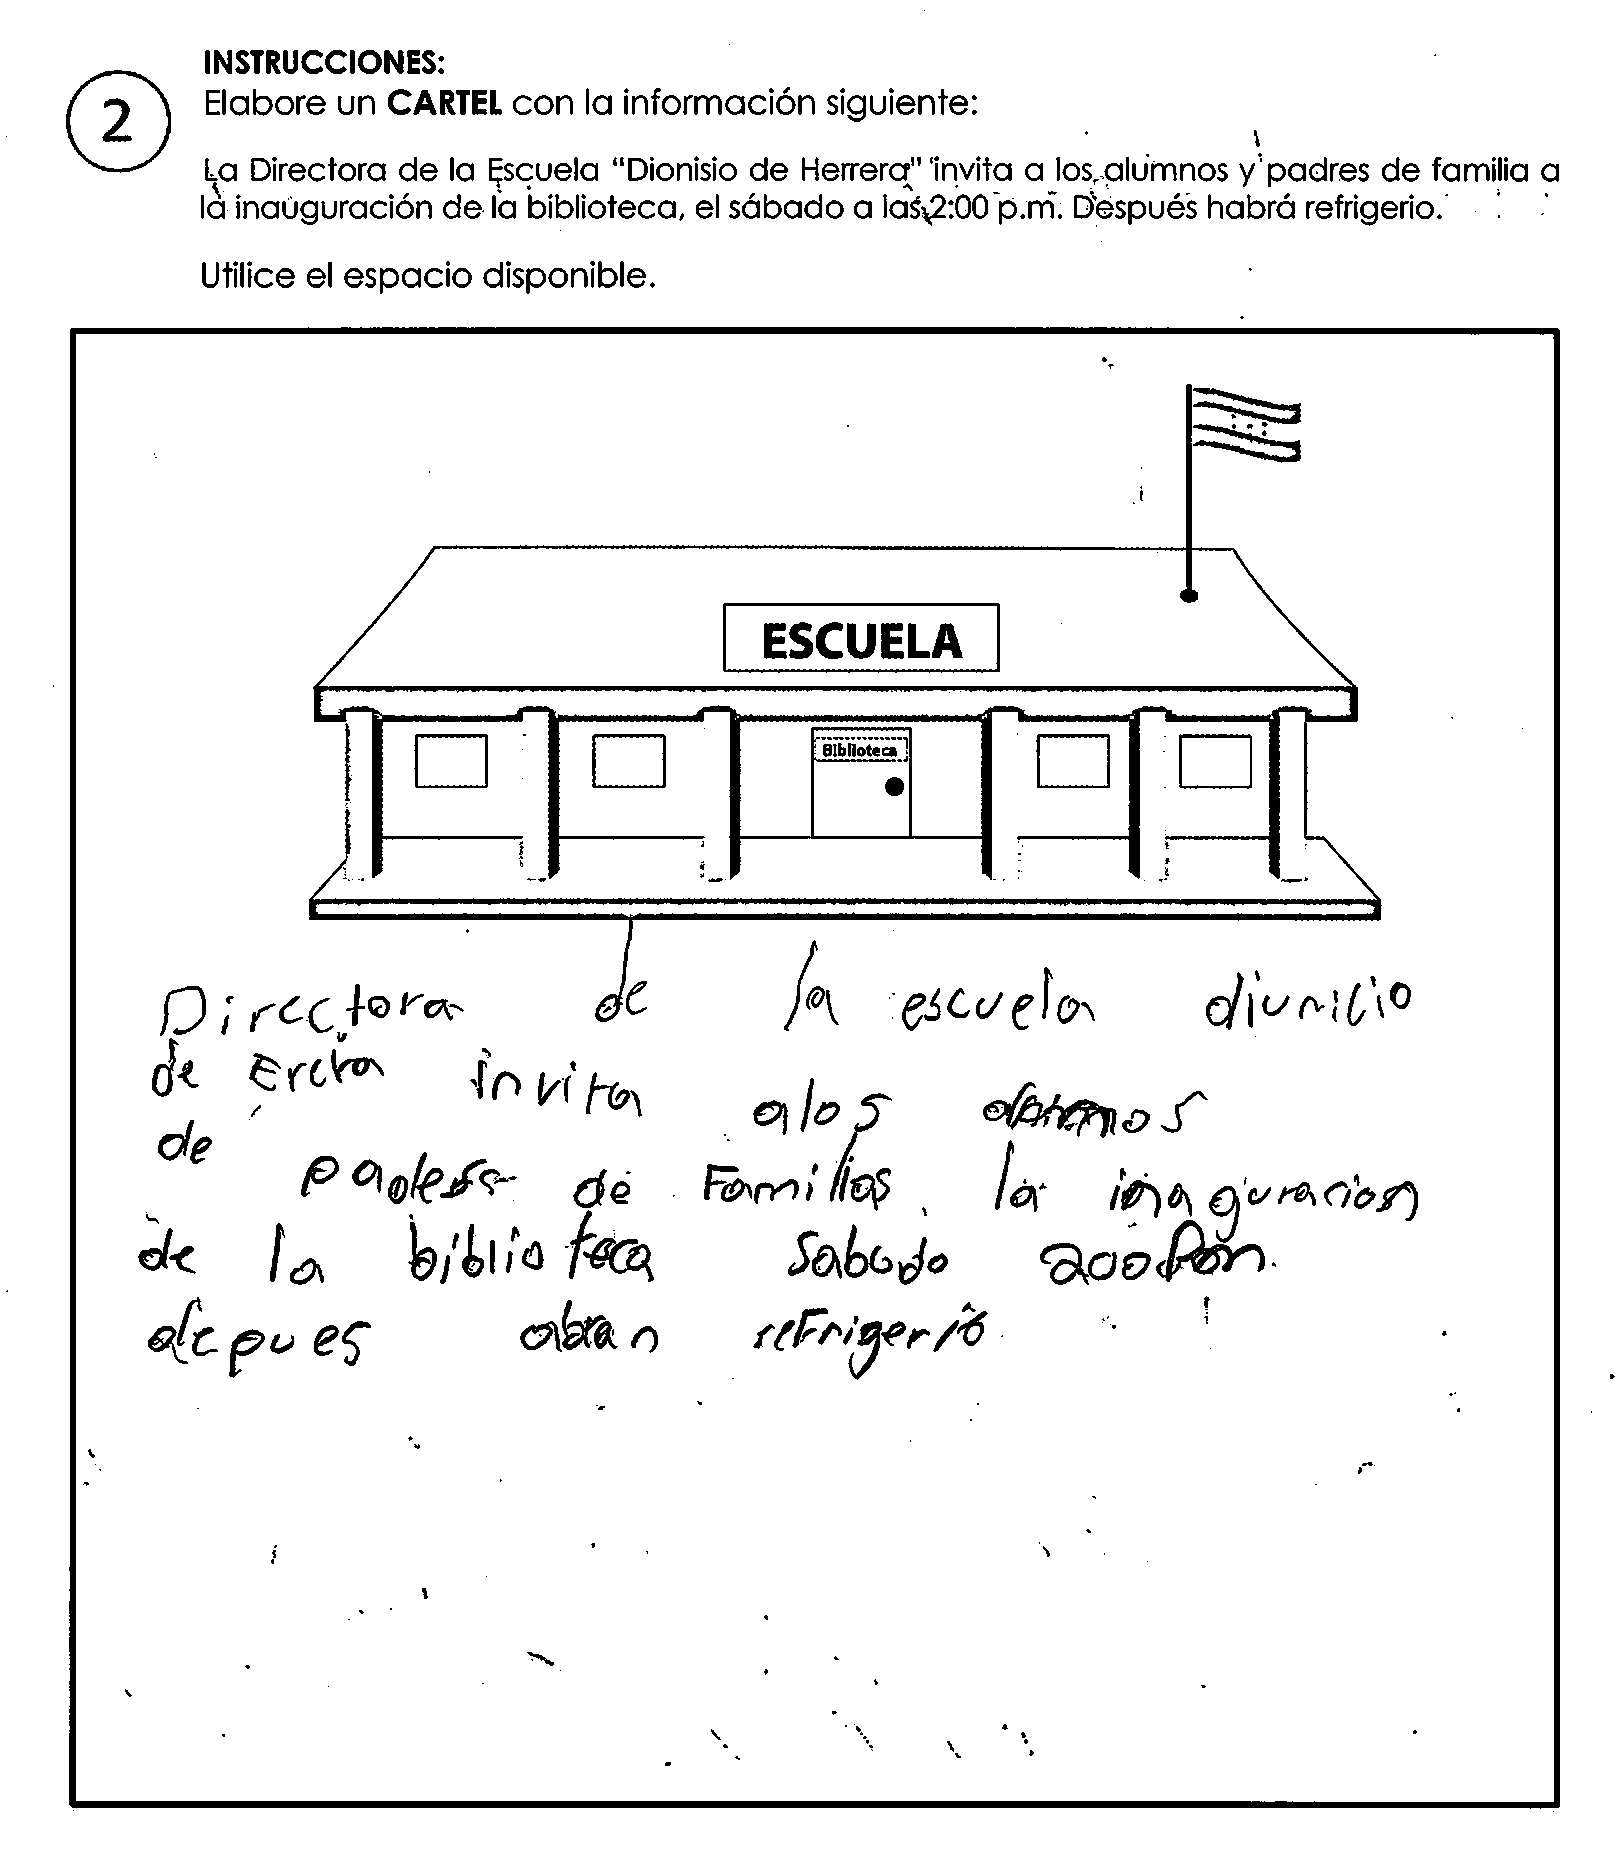 INSTRUCCIONES:
2
Elabore un CARTEL con la información siguiente:
La Directora de la Escuela "Dionisio de Herrera" invita a los alumnos y padres de familia a
la inauguración de la biblioteca, el sábado a las 2:00 p.m. Después habrá refrigerio.
Utilice el espacio disponible.
ESCUELA
Biblioteca
Directora de la escuela diunicio
de Erera invita alos
de padess de Familias la inaguracion
de la biblioteca Sabado 200 Pm.
depues abran refrigerio